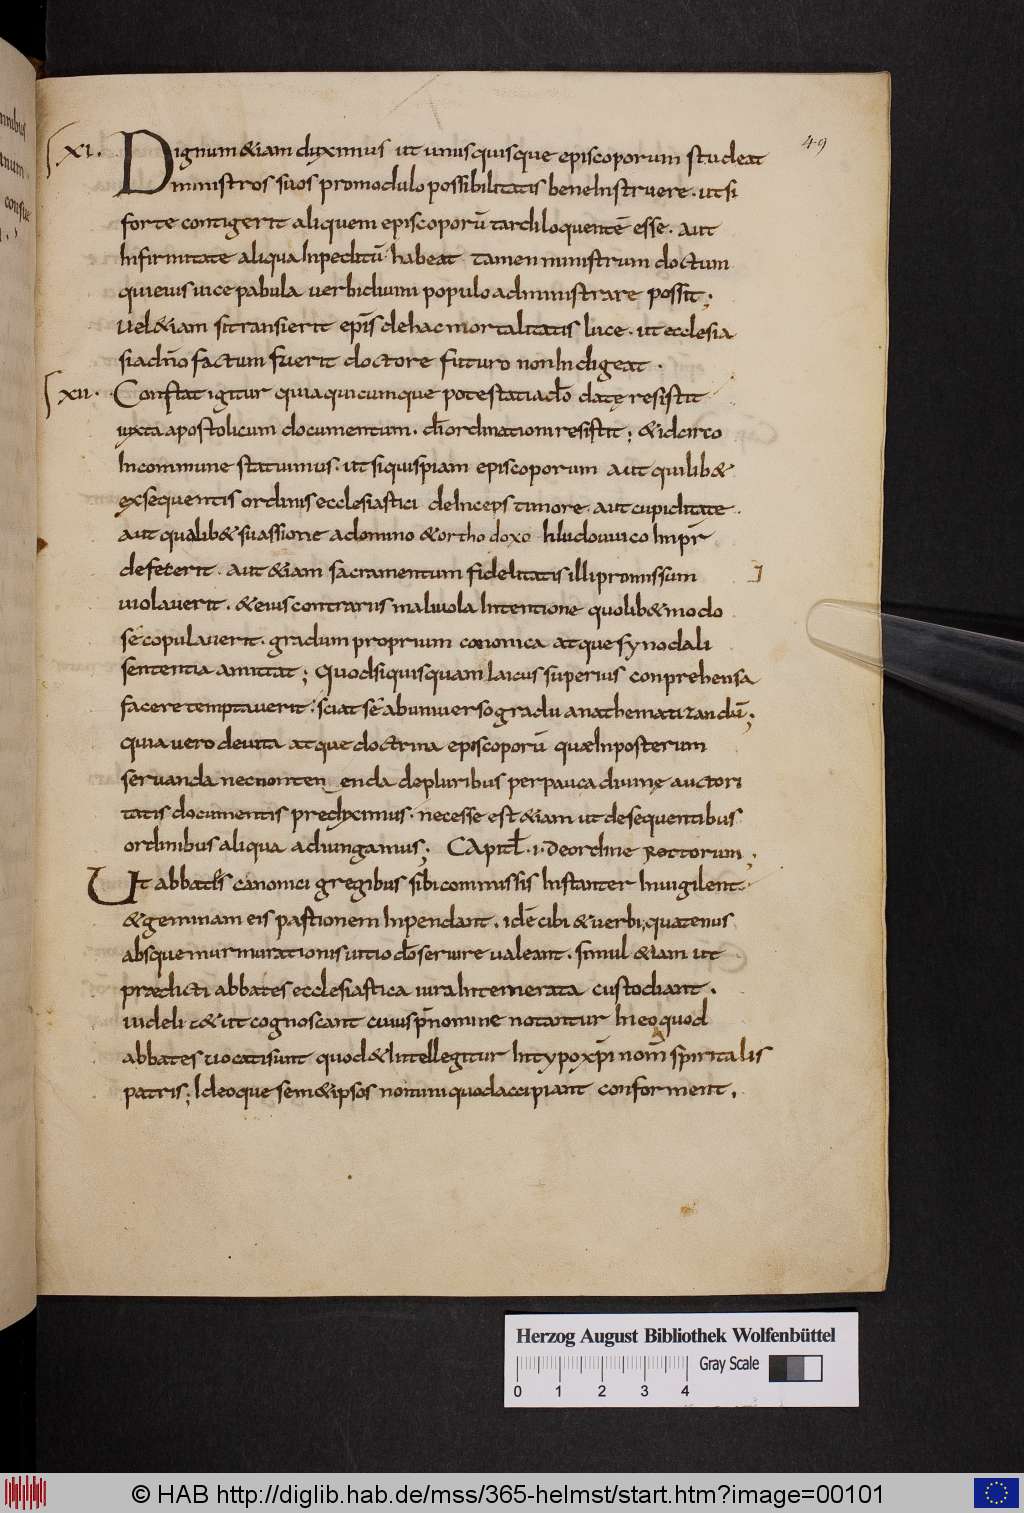 49
XI. Dignum &iam duximus ut unusquisque episcoporum studeat
ministros suos promodulo possibilitatis bene Instruere. ut si
forte contigerit aliquem episcoporū tardiloquentē esse. aut
Infirmitate aliqua Inpeditū habeat tamen ministrum doctum
qui eius uice pabula uerbi diuini populo administrare possit;
Vel &iam si transierit epīs de hac mortalitatis luce. ut ecclesia
si ad n̄o factum fuerit doctore futuro non Indigeat.
XII. Constat igitur quia quicumque potestati a dō datę resistit
iuxta apostolicum documentum. dī ordinationi resistit; & idcirco
In commune statuimus. ut si quispiam episcoporum aut quilib&
exsequentis ordinis ecclesiastici deInceps timore. aut cupiditate.
aut qualib& suassione a domino & orthodoxo hludouuico Impr̄
defecerit. aut &iam sacramentum fidelitatis illi promissum
uiolauerit. & eius contrariis maliuola Intentione quolib& modo
se copulauerit. gradum proprium canonica atque synodali
sententia amittat; Quod si quisquam laicus superius conprehensa
facere temptauerit. sciat se ab uniuerso gradu anathematizandū;
quia uero de uita atque doctrina episcoporū quæ Inposterum
seruanda necnon ten enda de pluribus perpauca diuinę auctori
tatis documentis prediximus. necesse est &iam ut de sequentibus
ordinibus aliqua adiungamus; CApitł. I. De ordine Rectorum;
Ut abbates canonici gregibus sibi commissis Instanter Inuigilent.
& geminam eis pastionem Inpendant. idē cibi & uerbi, quatenus
absque murmurationis uitio dō seruire ualeant. simul &iam ut
prædicti abbates ecclesiastica iura Intemerata custodiant.
uideli c& ut cognoscant cuius p̄nomine notantur In eo quod
abbates uocati sunt quod & Intellegitur In typo xp̄i nom̄ spiritalis
patris; Ideoque sem& ipsos nomini quod accipiant conforment.
Herzog August Bibliothek Wolfenbüttel
Gray Scale
0 1 2 3 4
© HAB http://diglib.hab.de/mss/365-helmst/start.htm?image=00101